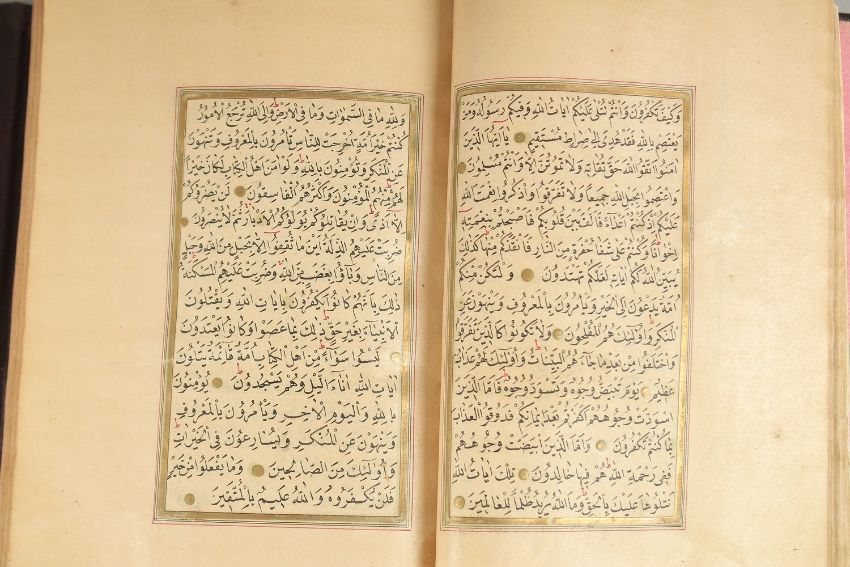 وَكَيْفَ تَكْفُرُونَ وَاَنْتُمْ تُتْلٰى عَلَيْكُمْ اٰيَاتُ اللّٰهِ وَفِيكُمْ رَسُولُهُ وَمَنْ
يَعْتَصِمْ بِاللّٰهِ فَقَدْ هُدِىَ اِلٰى صِرَاطٍ مُسْتَقِيمٍ يَا اَيُّهَا الَّذِينَ
اٰمَنُوا اتَّقُوا اللّٰهَ حَقَّ تُقَاتِهِ وَلَا تَمُوتُنَّ اِلَّا وَاَنْتُمْ مُسْلِمُونَ
وَاعْتَصِمُوا بِحَبْلِ اللّٰهِ جَمِيعًا وَلَا تَفَرَّقُوا وَاذْكُرُوا نِعْمَتَ اللّٰهِ
عَلَيْكُمْ اِذْ كُنْتُمْ اَعْدَاءً فَاَلَّفَ بَيْنَ قُلُوبِكُمْ فَاَصْبَحْتُمْ بِنِعْمَتِهِ
اِخْوَانًا وَكُنْتُمْ عَلٰى شَفَا حُفْرَةٍ مِنَ النَّارِ فَاَنْقَذَكُمْ مِنْهَا كَذٰلِكَ
يُبَيِّنُ اللّٰهُ لَكُمْ اٰيَاتِهِ لَعَلَّكُمْ تَهْتَدُونَ وَلْتَكُنْ مِنْكُمْ
اُمَّةٌ يَدْعُونَ اِلَى الْخَيْرِ وَيَأْمُرُونَ بِالْمَعْرُوفِ وَيَنْهَوْنَ عَنِ
الْمُنْكَرِ وَاُولٰئِكَ هُمُ الْمُفْلِحُونَ وَلَا تَكُونُوا كَالَّذِينَ تَفَرَّقُوا
وَاخْتَلَفُوا مِنْ بَعْدِ مَا جَاءَهُمُ الْبَيِّنَاتُ وَاُولٰئِكَ لَهُمْ عَذَابٌ
عَظِيمٌ يَوْمَ تَبْيَضُّ وُجُوهٌ وَتَسْوَدُّ وُجُوهٌ فَاَمَّا الَّذِينَ
اسْوَدَّتْ وُجُوهُهُمْ اَكَفَرْتُمْ بَعْدَ اِيمَانِكُمْ فَذُوقُوا الْعَذَابَ
بِمَا كُنْتُمْ تَكْفُرُونَ وَاَمَّا الَّذِينَ ابْيَضَّتْ وُجُوهُهُمْ
فَفِى رَحْمَةِ اللّٰهِ هُمْ فِيهَا خَالِدُونَ تِلْكَ اٰيَاتُ اللّٰهِ
نَتْلُوهَا عَلَيْكَ بِالْحَقِّ وَمَا اللّٰهُ يُرِيدُ ظُلْمًا لِلْعَالَمِينَ
وَلِلّٰهِ مَا فِى السَّمٰوَاتِ وَمَا فِى الْاَرْضِ وَاِلَى اللّٰهِ تُرْجَعُ الْاُمُورُ
كُنْتُمْ خَيْرَ اُمَّةٍ اُخْرِجَتْ لِلنَّاسِ تَأْمُرُونَ بِالْمَعْرُوفِ وَتَنْهَوْنَ
عَنِ الْمُنْكَرِ وَتُؤْمِنُونَ بِاللّٰهِ وَلَوْ اٰمَنَ اَهْلُ الْكِتَابِ لَكَانَ خَيْرًا
لَهُمْ مِنْهُمُ الْمُؤْمِنُونَ وَاَكْثَرُهُمُ الْفَاسِقُونَ لَنْ يَضُرُّوكُمْ
اِلَّا اَذًى وَاِنْ يُقَاتِلُوكُمْ يُوَلُّوكُمُ الْاَدْبَارَ ثُمَّ لَا يُنْصَرُونَ
ضُرِبَتْ عَلَيْهِمُ الذِّلَّةُ اَيْنَ مَا ثُقِفُوا اِلَّا بِحَبْلٍ مِنَ اللّٰهِ وَحَبْلٍ
مِنَ النَّاسِ وَبَاؤُ بِغَضَبٍ مِنَ اللّٰهِ وَضُرِبَتْ عَلَيْهِمُ الْمَسْكَنَةُ
ذٰلِكَ بِاَنَّهُمْ كَانُوا يَكْفُرُونَ بِاٰيَاتِ اللّٰهِ وَيَقْتُلُونَ
الْاَنْبِيَاءَ بِغَيْرِ حَقٍّ ذٰلِكَ بِمَا عَصَوْا وَكَانُوا يَعْتَدُونَ
لَيْسُوا سَوَاءً مِنْ اَهْلِ الْكِتَابِ اُمَّةٌ قَائِمَةٌ يَتْلُونَ
اٰيَاتِ اللّٰهِ اٰنَاءَ الَّيْلِ وَهُمْ يَسْجُدُونَ يُؤْمِنُونَ
بِاللّٰهِ وَالْيَوْمِ الْاٰخِرِ وَيَأْمُرُونَ بِالْمَعْرُوفِ
وَيَنْهَوْنَ عَنِ الْمُنْكَرِ وَيُسَارِعُونَ فِى الْخَيْرَاتِ
وَاُولٰئِكَ مِنَ الصَّالِحِينَ وَمَا يَفْعَلُوا مِنْ خَيْرٍ
فَلَنْ يُكْفَرُوهُ وَاللّٰهُ عَلِيمٌ بِالْمُتَّقِينَ